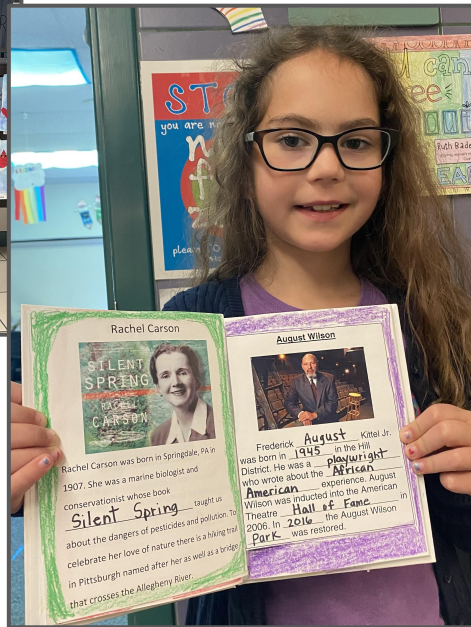 ST
you are n
plea
can
ee
out
Ruth Bade
EA
Rachel Carson
SILENT
SPRING
RACHEL
CARSON
Rachel Carson was born in Springdale, PA in
1907. She was a marine biologist and
conservationist whose book
Silent Spring taught us
about the dangers of pesticides and pollution. To
celebrate her love of nature there is a hiking trail
in Pittsburgh named after her as well as a bridge
that crosses the Allegheny River.
August Wilson
Frederick August Kittel Jr.
was born in 1945 in the Hill
District. He was a playwright
who wrote about the African
American experience. August
Wilson was inducted into the American
Theatre Hall of Fame in
2006. In 2016 the August Wilson
Park was restored.